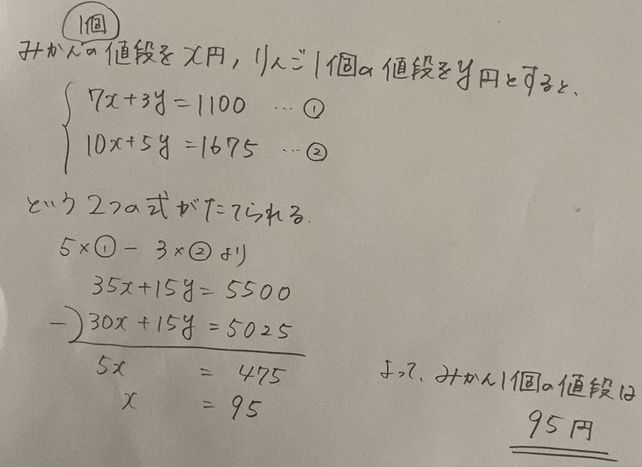 1個
みかんの値段をx円,りんご1個の値段をy円とすると、
7x+3y=1100 … ①
10x+5y=1675 … ②
という2つの式がたてられる.
5×①-3×②より
35x+15y=5500
-)30x+15y=5025
5x = 475
x = 95
よって、みかん1個の値段は
95円